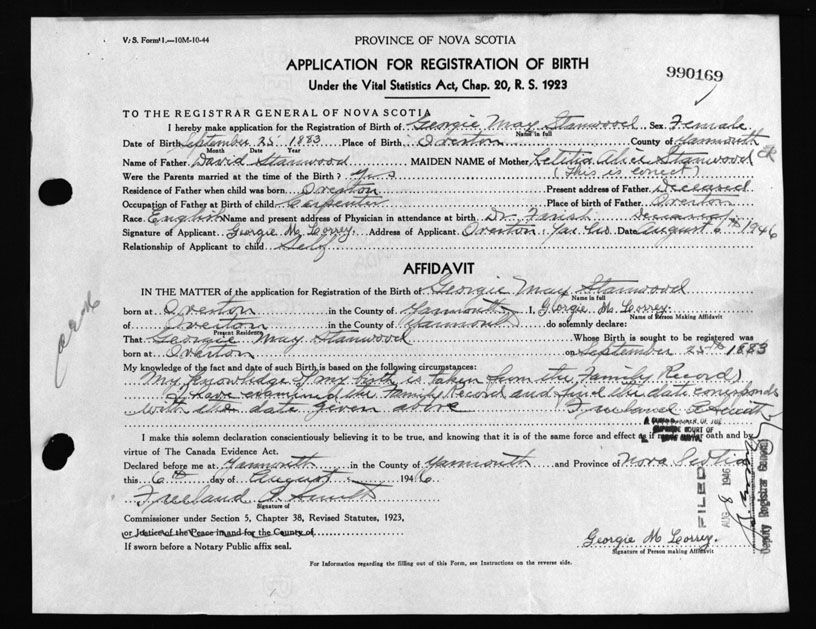 V. S. Form 1.—10M-10-44
PROVINCE OF NOVA SCOTIA
990169
APPLICATION FOR REGISTRATION OF BIRTH
Under the Vital Statistics Act, Chap. 20, R. S. 1923
TO THE REGISTRAR GENERAL OF NOVA SCOTIA
I hereby make application for the Registration of Birth of Georgie May Stanwood Sex Female
Name in full
Date of Birth September 25 1883 Place of Birth Overton County of Yarmouth
Month Date Year
Name of Father David Stanwood MAIDEN NAME of Mother Letitia Alice Stanwood
Were the Parents married at the time of the Birth? Yes (This is correct)
Residence of Father when child was born Overton Present address of Father Deceased
Occupation of Father at Birth of child Carpenter Place of birth of Father Overton
Race English Name and present address of Physician in attendance at birth Dr. Farish Deceased
Signature of Applicant Georgie M. Correy. Address of Applicant Overton, Yar. Co. Date August 6th 1946
Relationship of Applicant to child Self
AFFIDAVIT
IN THE MATTER of the application for Registration of the Birth of Georgie May Stanwood
Name in full
born at Overton in the County of Yarmouth I, Georgie M. Correy.
Name of Person Making Affidavit
of Overton in the County of Yarmouth do solemnly declare:
Present Residence
That Georgie May Stanwood Whose Birth is sought to be registered was
born at Overton on September 25th 1883
My knowledge of the fact and date of such Birth is based on the following circumstances:
My knowledge of my birth is taken from the Family Record
I have examined the Family Record and find the date corresponds
with the date given above Freeland Smith
COURT OF
I make this solemn declaration conscientiously believing it to be true, and knowing that it is of the same force and effect as if made under oath and by
virtue of The Canada Evidence Act.
Declared before me at Yarmouth in the County of Yarmouth and Province of Nova Scotia
this 6th day of August 1946
Freeland Smith
Signature of
Commissioner under Section 5, Chapter 38, Revised Statutes, 1923,
or Justice of the Peace in and for the County of
If sworn before a Notary Public affix seal.
FILED
AUG 8 1946
Deputy Registrar General
Georgie M Correy.
Signature of Person making Affidavit
For Information regarding the filling out of this Form, see Instructions on the reverse side.